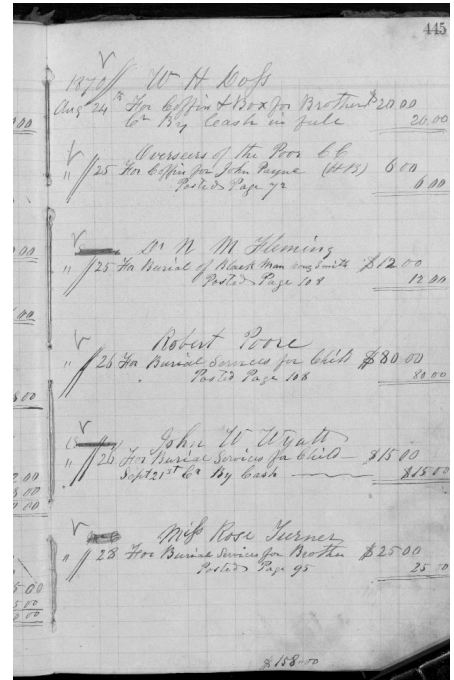 445
1870 W H Doss
Aug 24th For Coffin & Box for Brother $20.00
Cr By Cash in full 20.00
Overseers of the Poor CC
" 25 For Coffin for John Payne 6.00
Posted Page 72 6.00
Dr N M Fleming
" 25 For Burial of Black Man Smith $12.00
Posted Page 108 12.00
Robert Poore
" 26 For Burial Services for Child $80.00
Posted Page 108 80.00
John W Wyatt
" 26 For Burial Services for Child $15.00
Sept 21st Cr By Cash $15.00
Miss Rose Turner
" 28 For Burial Services for Brother $25.00
Posted Page 95 25.00
$158.00